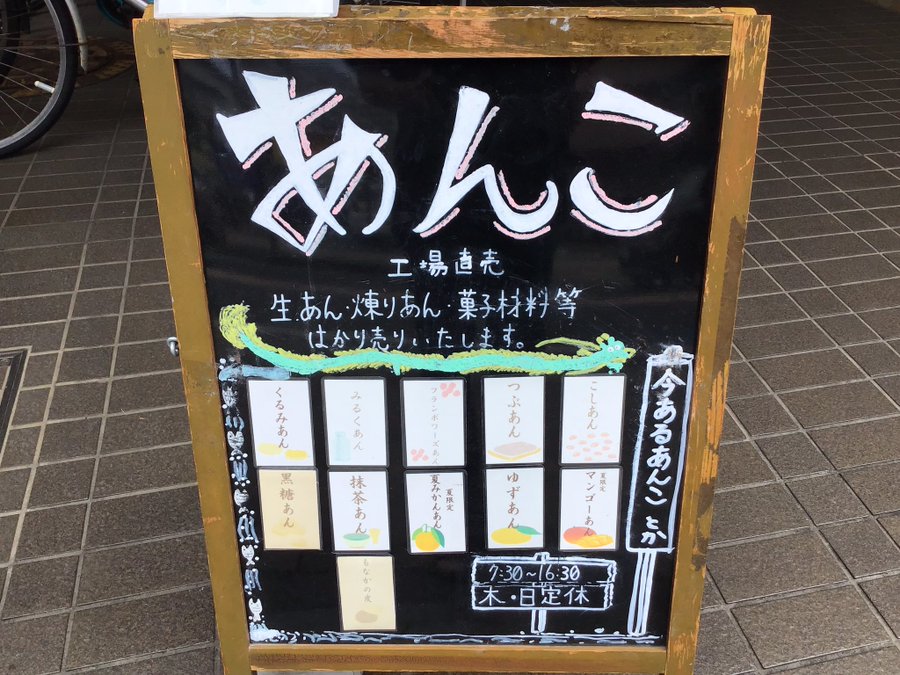 あんこ
工場直売
生あん・煉りあん・菓子材料等
はかり売りいたします。
今あるあんことか
こしあん
つぶあん
フランボワーズあん
みるくあん
くるみあん
夏限定
マンゴーあん
ゆずあん
夏限定
夏みかんあん
抹茶あん
黒糖あん
もなかの皮
7:30~16:30
木・日定休